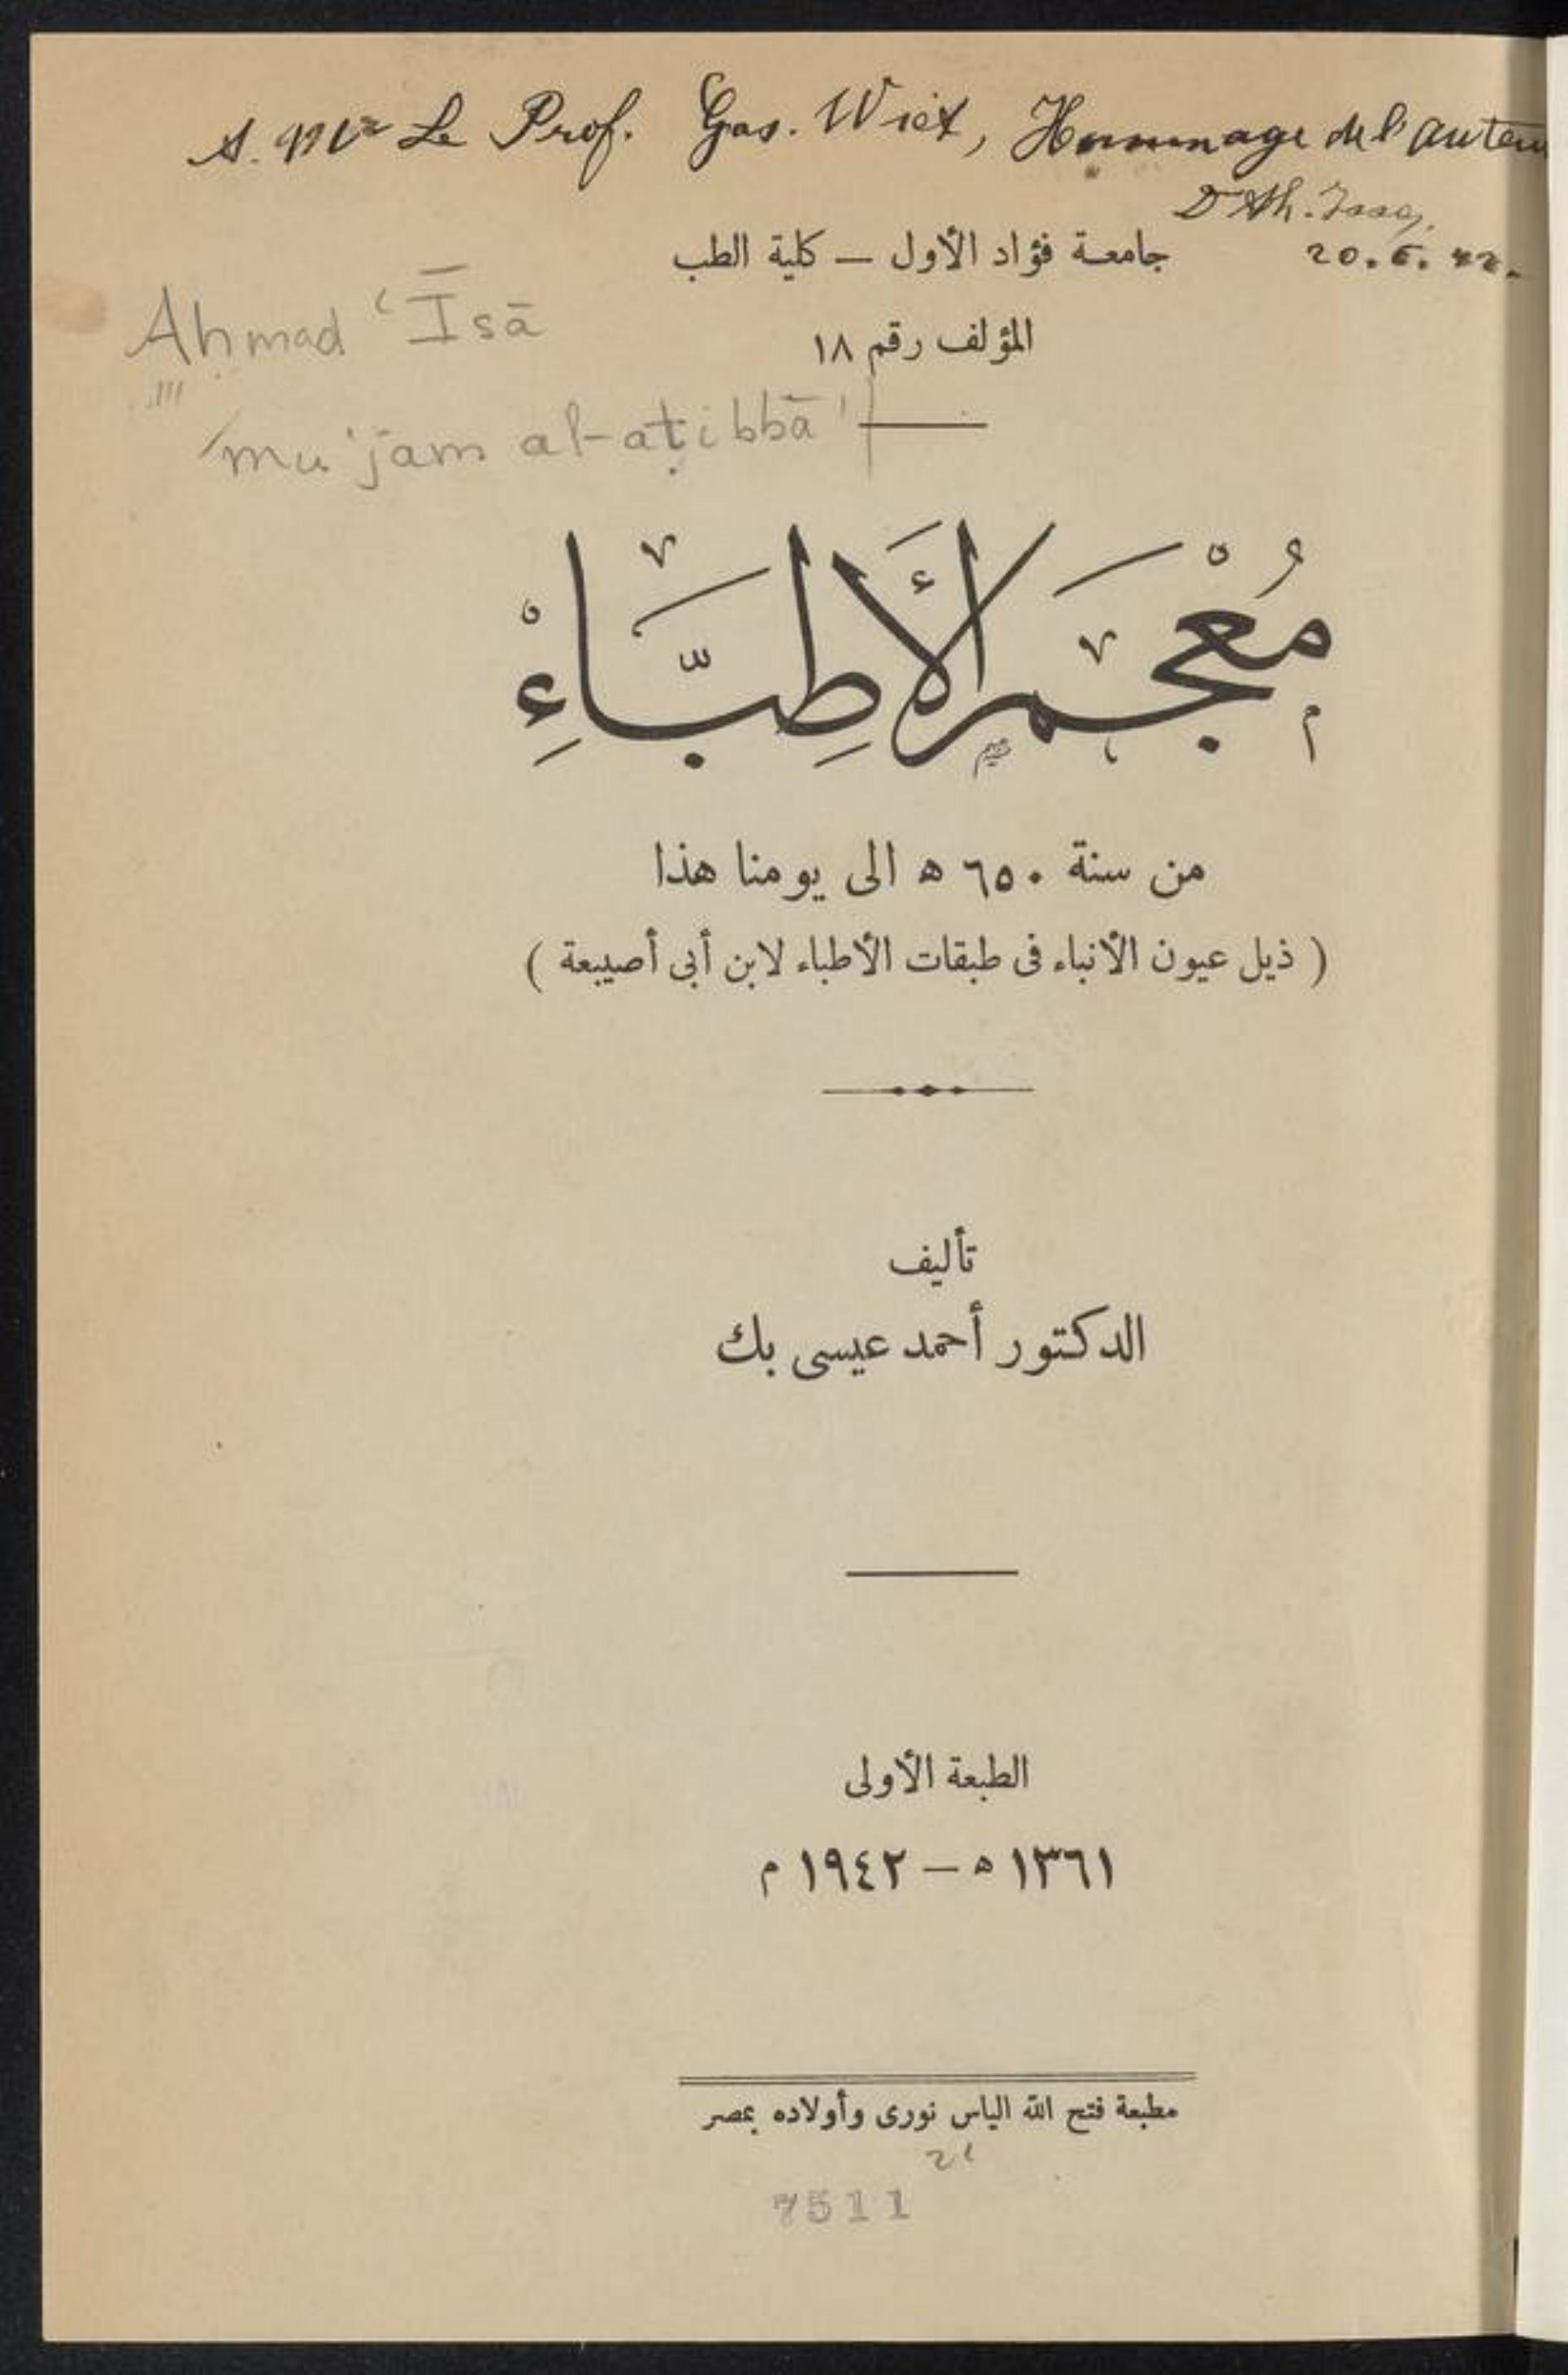 A. Mr Le Prof. Gas. Wiet, Hommage de l'auteur
Dr Ah. Issa
20.6.42.
جامعة فؤاد الأول — كلية الطب
Ahmad ʿĪsā
المؤلف رقم ١٨
mu'jam al-aṭibbā'
مُعْجَم الأَطِبَّاءِ
من سنة ٦٥٠ ﻫ الى يومنا هذا
( ذيل عيون الأنباء فى طبقات الأطباء لابن أبى أصيبعة )
تأليف
الدكتور أحمد عيسى بك
الطبعة الأولى
١٣٦١ ﻫ — ١٩٤٢ م
مطبعة فتح الله الياس نورى وأولاده بمصر
21
7511